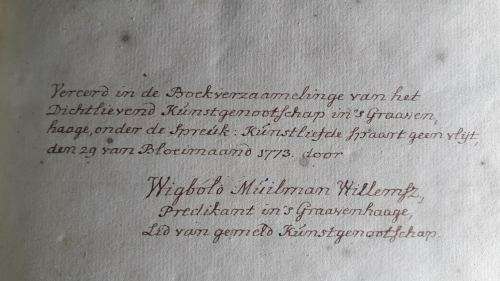 Vereerd in de Boekverzaamelinge van het
Dichtlievend Kúnstgenootschap in 's Graaven,
haage, onder de Spreúk: Kúnstliefde spaart geen vlijt,
den 29 van Bloeimaand 1773. door
Wigbold Múilman Willemsz,
Predikant in 's Graavenhaage,
Lid van gemeld Kúnstgenootschap.